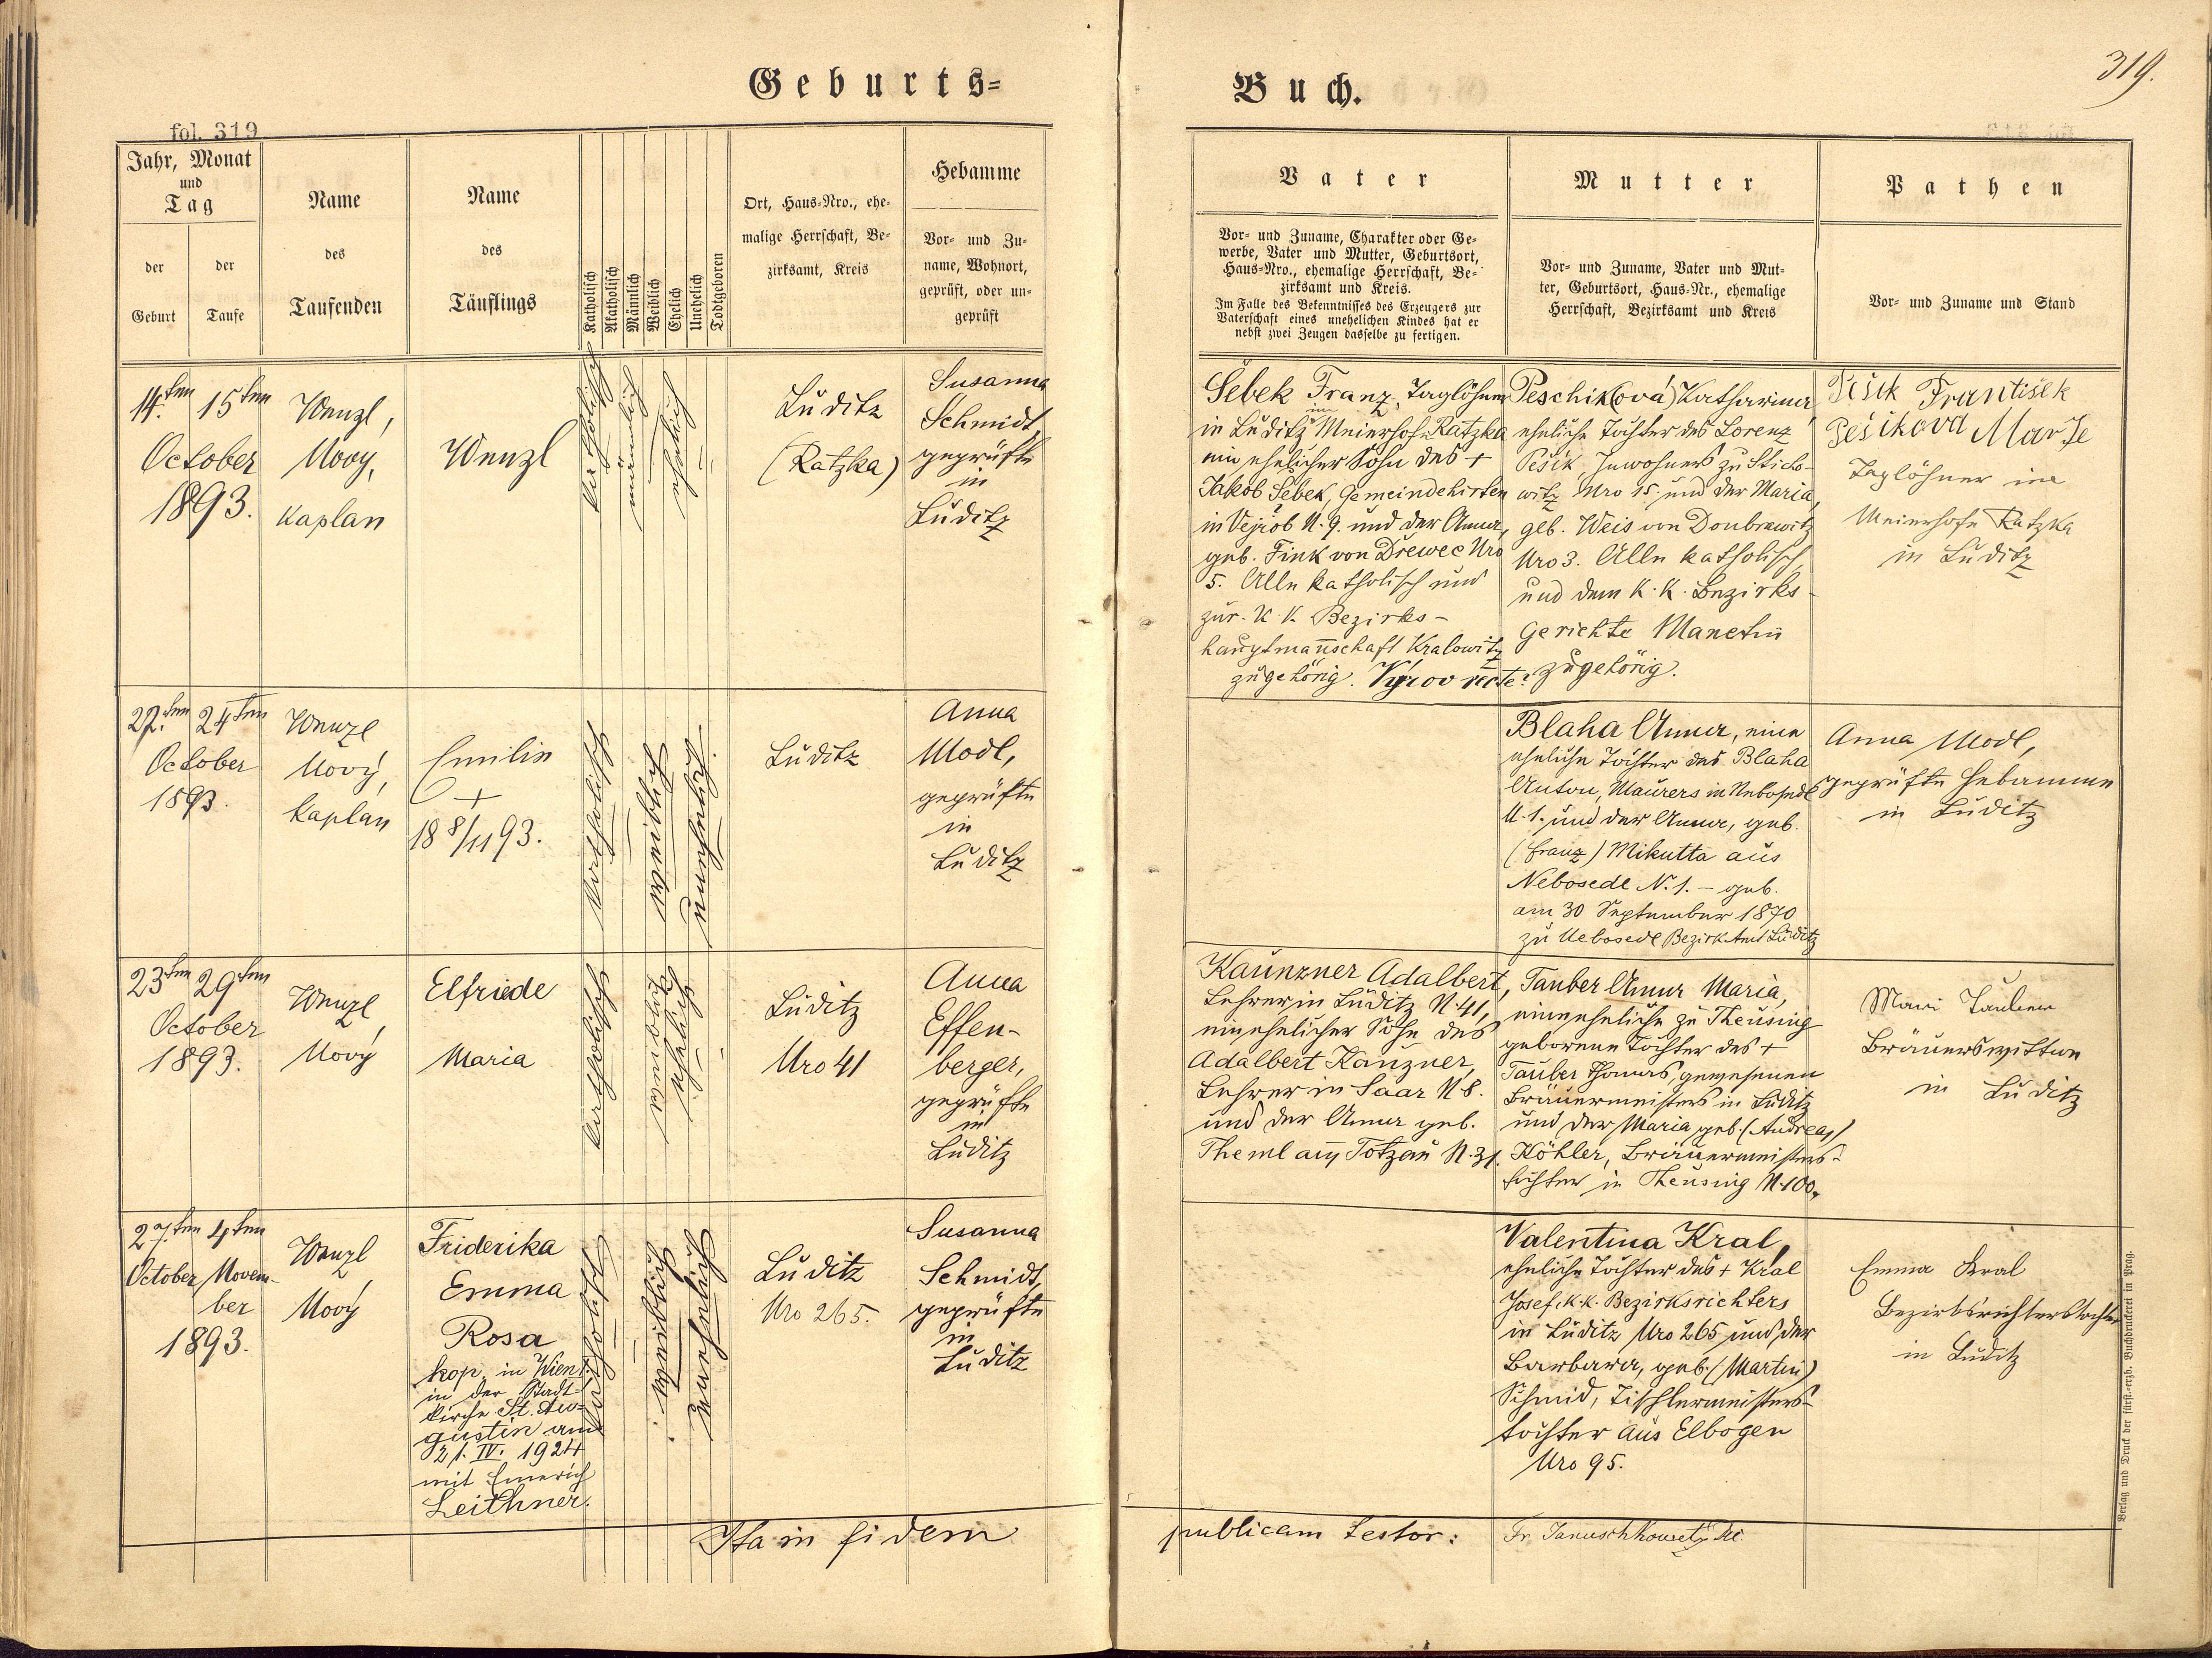 Geburts=
Buch.
319.
fol. 319
Jahr, Monat
und
Tag
der
Geburt
der
Taufe
Name
des
Taufenden
Name
des
Täuflings
Katholisch
Akatholisch
Männlich
Weiblich
Ehelich
Unehelich
Todtgeboren
Ort, Haus-Nro., ehe-
malige Herrschaft, Be-
zirksamt, Kreis
Hebamme
Vor- und Zu-
name, Wohnort,
geprüft, oder un-
geprüft
Vater
Vor- und Zuname, Charakter oder Ge-
werbe, Vater und Mutter, Geburtsort,
Haus-Nro., ehemalige Herrschaft, Be-
zirksamt und Kreis.
Im Falle des Bekenntnisses des Erzeugers zur
Vaterschaft eines unehelichen Kindes hat er
nebst zwei Zeugen dasselbe zu fertigen.
Mutter
Vor- und Zuname, Vater und Mut-
ter, Geburtsort, Haus-Nr., ehemalige
Herrschaft, Bezirksamt und Kreis
Pathen
Vor- und Zuname und Stand
14.ten 15ten
October
1893.
Wenzl,
Nový,
Kaplan
Wenzl
katholisch
männlich
ehelich
Luditz
(Ratzka)
Susanna
Schmidt,
geprüfte
in
Luditz
Šebek Franz, Taglöhner
im
in Luditz Meierhofe Ratzka
ein ehelicher Sohn des +
Jakob Šebek, Gemeindehirten
in Vejrob N. 9. und der Anna,
geb. Fink von Drewec Nro
5. Alle katholisch und
zur K. K. Bezirks-
hauptmannschaft Kralowitz
zugehörig. Výrov recte?
Peschik(ová) Katharina,
eheliche Tochter des Lorenz
Pešik Inwohners zu Sticho-
witz Nro 15. und der Maria,
geb. Weis von Doubrawitz
Nro 3. Alle katholisch,
und dem K. K. Bezirks-
gerichte Manetin
zugehörig.
Pešik František
Pešikova Marie
Taglöhner im
Meierhofe Ratzka
in Luditz
22.ten 24ten
October
1893.
Wenzl
Nový,
Kaplan
Emilie
+
18 8/11 93.
katholisch
weiblich
unehelich.
Luditz
Anna
Modl,
geprüfte
in
Luditz
Blaha Anna, eine
eheliche Tochter des Blaha
Anton, Maurers in Nebosedl
N. 1. und der Anna, geb.
(Franz) Mikutta aus
Nebosedl N. 1. – geb.
am 30 September 1870
zu Nebosedl Bezirk Amt Luditz
Anna Modl,
geprüfte Hebamme
in Luditz
23ten 29ten
October
1893.
Wenzl
Nový
Elfriede
Maria
katholisch
weiblich
ehelich
Luditz
Nro 41
Anna
Effen-
berger,
geprüfte
in
Luditz
Kaunzner Adalbert,
Lehrer in Luditz N. 41,
ein ehelicher Sohn des
Adalbert Kaunzner,
Lehrer in Saar N 8.
und der Anna geb.
Theml aus Totzau N. 31.
Tauber Anna Maria,
eine eheliche zu Theusing
geborene Tochter des +
Tauber Thomas, gewesenen
Bräuermeisters in Luditz
und der Maria geb. (Andreas)
Köhler, Bräuermeisters-
tochter in Theusing N. 100.
Mari Tauber
Bräuerswittwe
in Luditz
27.ten 4ten
October Novem-
ber
1893.
Wenzl
Nový
Friderika
Emma
Rosa
kop. in Wien I.
in der Stadt-
kirche St. Au-
gustin am
21. IV. 1924
mit Emerich
Leithner.
katholisch
weiblich
unehelich
Luditz
Nro 265.
Susanna
Schmidt,
geprüfte
in
Luditz
Valentina Kral,
eheliche Tochter des + Kral
Josef, k.k. Bezirksrichters
in Luditz Nro 265 und der
Barbara, geb. (Martin)
Schmid, Tischlermeisters-
tochter aus Elbogen
Nro 95.
Emma Kral
Bezirksrichterstochter
in Luditz
Ita in fidem
publicam testor:
Verlag und Druck der fürst.-erzb. Buchdruckerei in Prag.